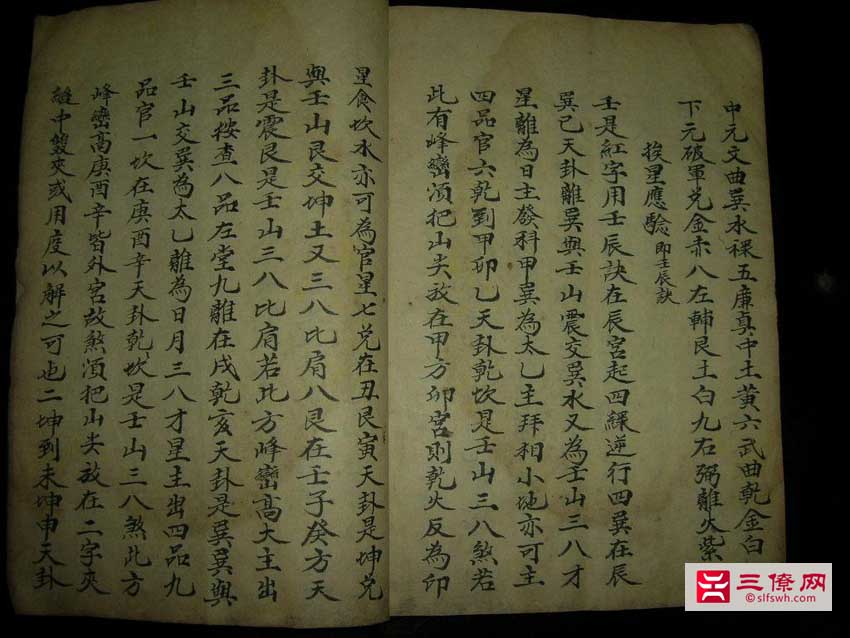 中元文曲巽水祿五廉真中土黃六武曲乾金白
下元破軍兌金赤八左輔艮土白九右弼離火紫
挨星應驗 即壬辰訣
壬是紅字用壬辰訣在辰宮起四綠逆行四巽在辰
巽己天卦離巽與壬山震交巽水又為壬山三八才
星離為日主發科甲巽為太乙主拜相小地亦可主
四品官六乾到甲卯乙天卦乾坎是壬山三八煞若
此有峰巒須把山尖放在甲方卯宮則乾火反為印
星食坎水亦可為官星七兌在丑艮寅天卦是坤兌
與壬山艮交坤土又三八比肩八艮在壬子癸方天
卦是震艮是壬山三八比肩若此方峰巒高大主出
三品按查八品在堂九離在戌乾亥天卦是巽巽與
壬山交巽為太乙離為日月三八才星主出四品九
品官一坎在庚酉辛天卦乾坎是壬山三八煞此方
峰巒高庚酉辛皆外宮故煞須把山尖放在二字夾
縫中雙夾或用度以解之可也二坤到未坤申天卦
三僚网
©slfswh.com